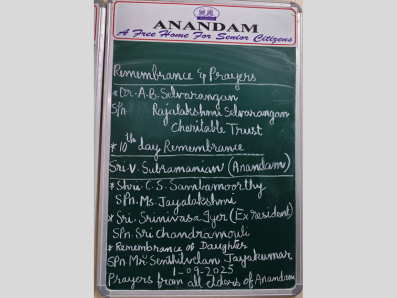 ANANDAM
A Free Home For Senior Citizens
Remembrance & Prayers
* Dr. A.B. Selvarangan
Spn. Rajalakshmi Selvarangan
Charitable Trust
* 10th day Remembrance
Sri. V. Subramanian (Anandam)
* Shri. C.S. Sambamoorthy
Spn. Ms. Jayalakshmi
* Sri. Srinivasa Iyer (Ex resident)
Spn. Sri Chandramouli
* Remembrance of Daughter
Spn. Mr. Senthilvelan Jayakumar
1-09-2025
Prayers from all elders of Anandam